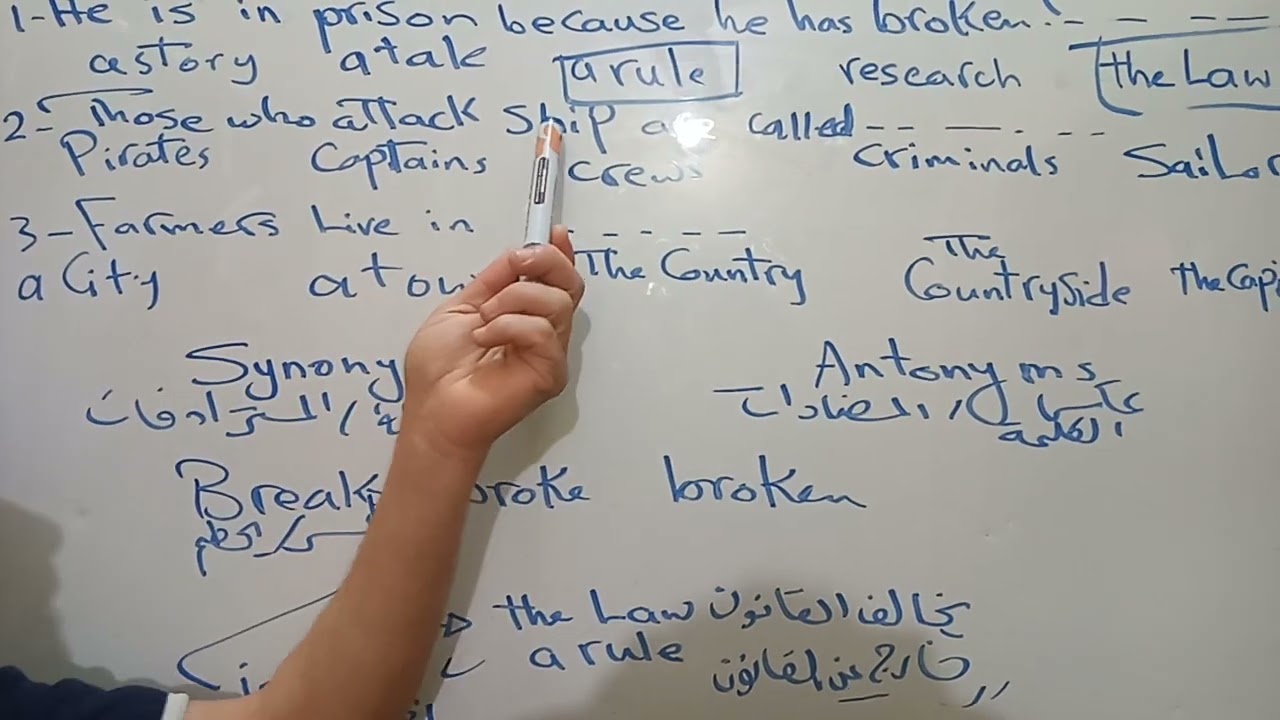 1-He is in prison because he has broken:- - - --
astory atale a rule research the Law
2- Those who attack ship are called -- -- . --
Pirates Captains crews criminals Sailor
3-Farmers Live in - - - - -
a City atow The Country The Countryside the Capi
Synony Antonyms
المترادفات / المضادات / عكس الكلمة
Break broke broken
يكسر / يحطم
the Law يخالف القانون
a rule خارج عن القانون